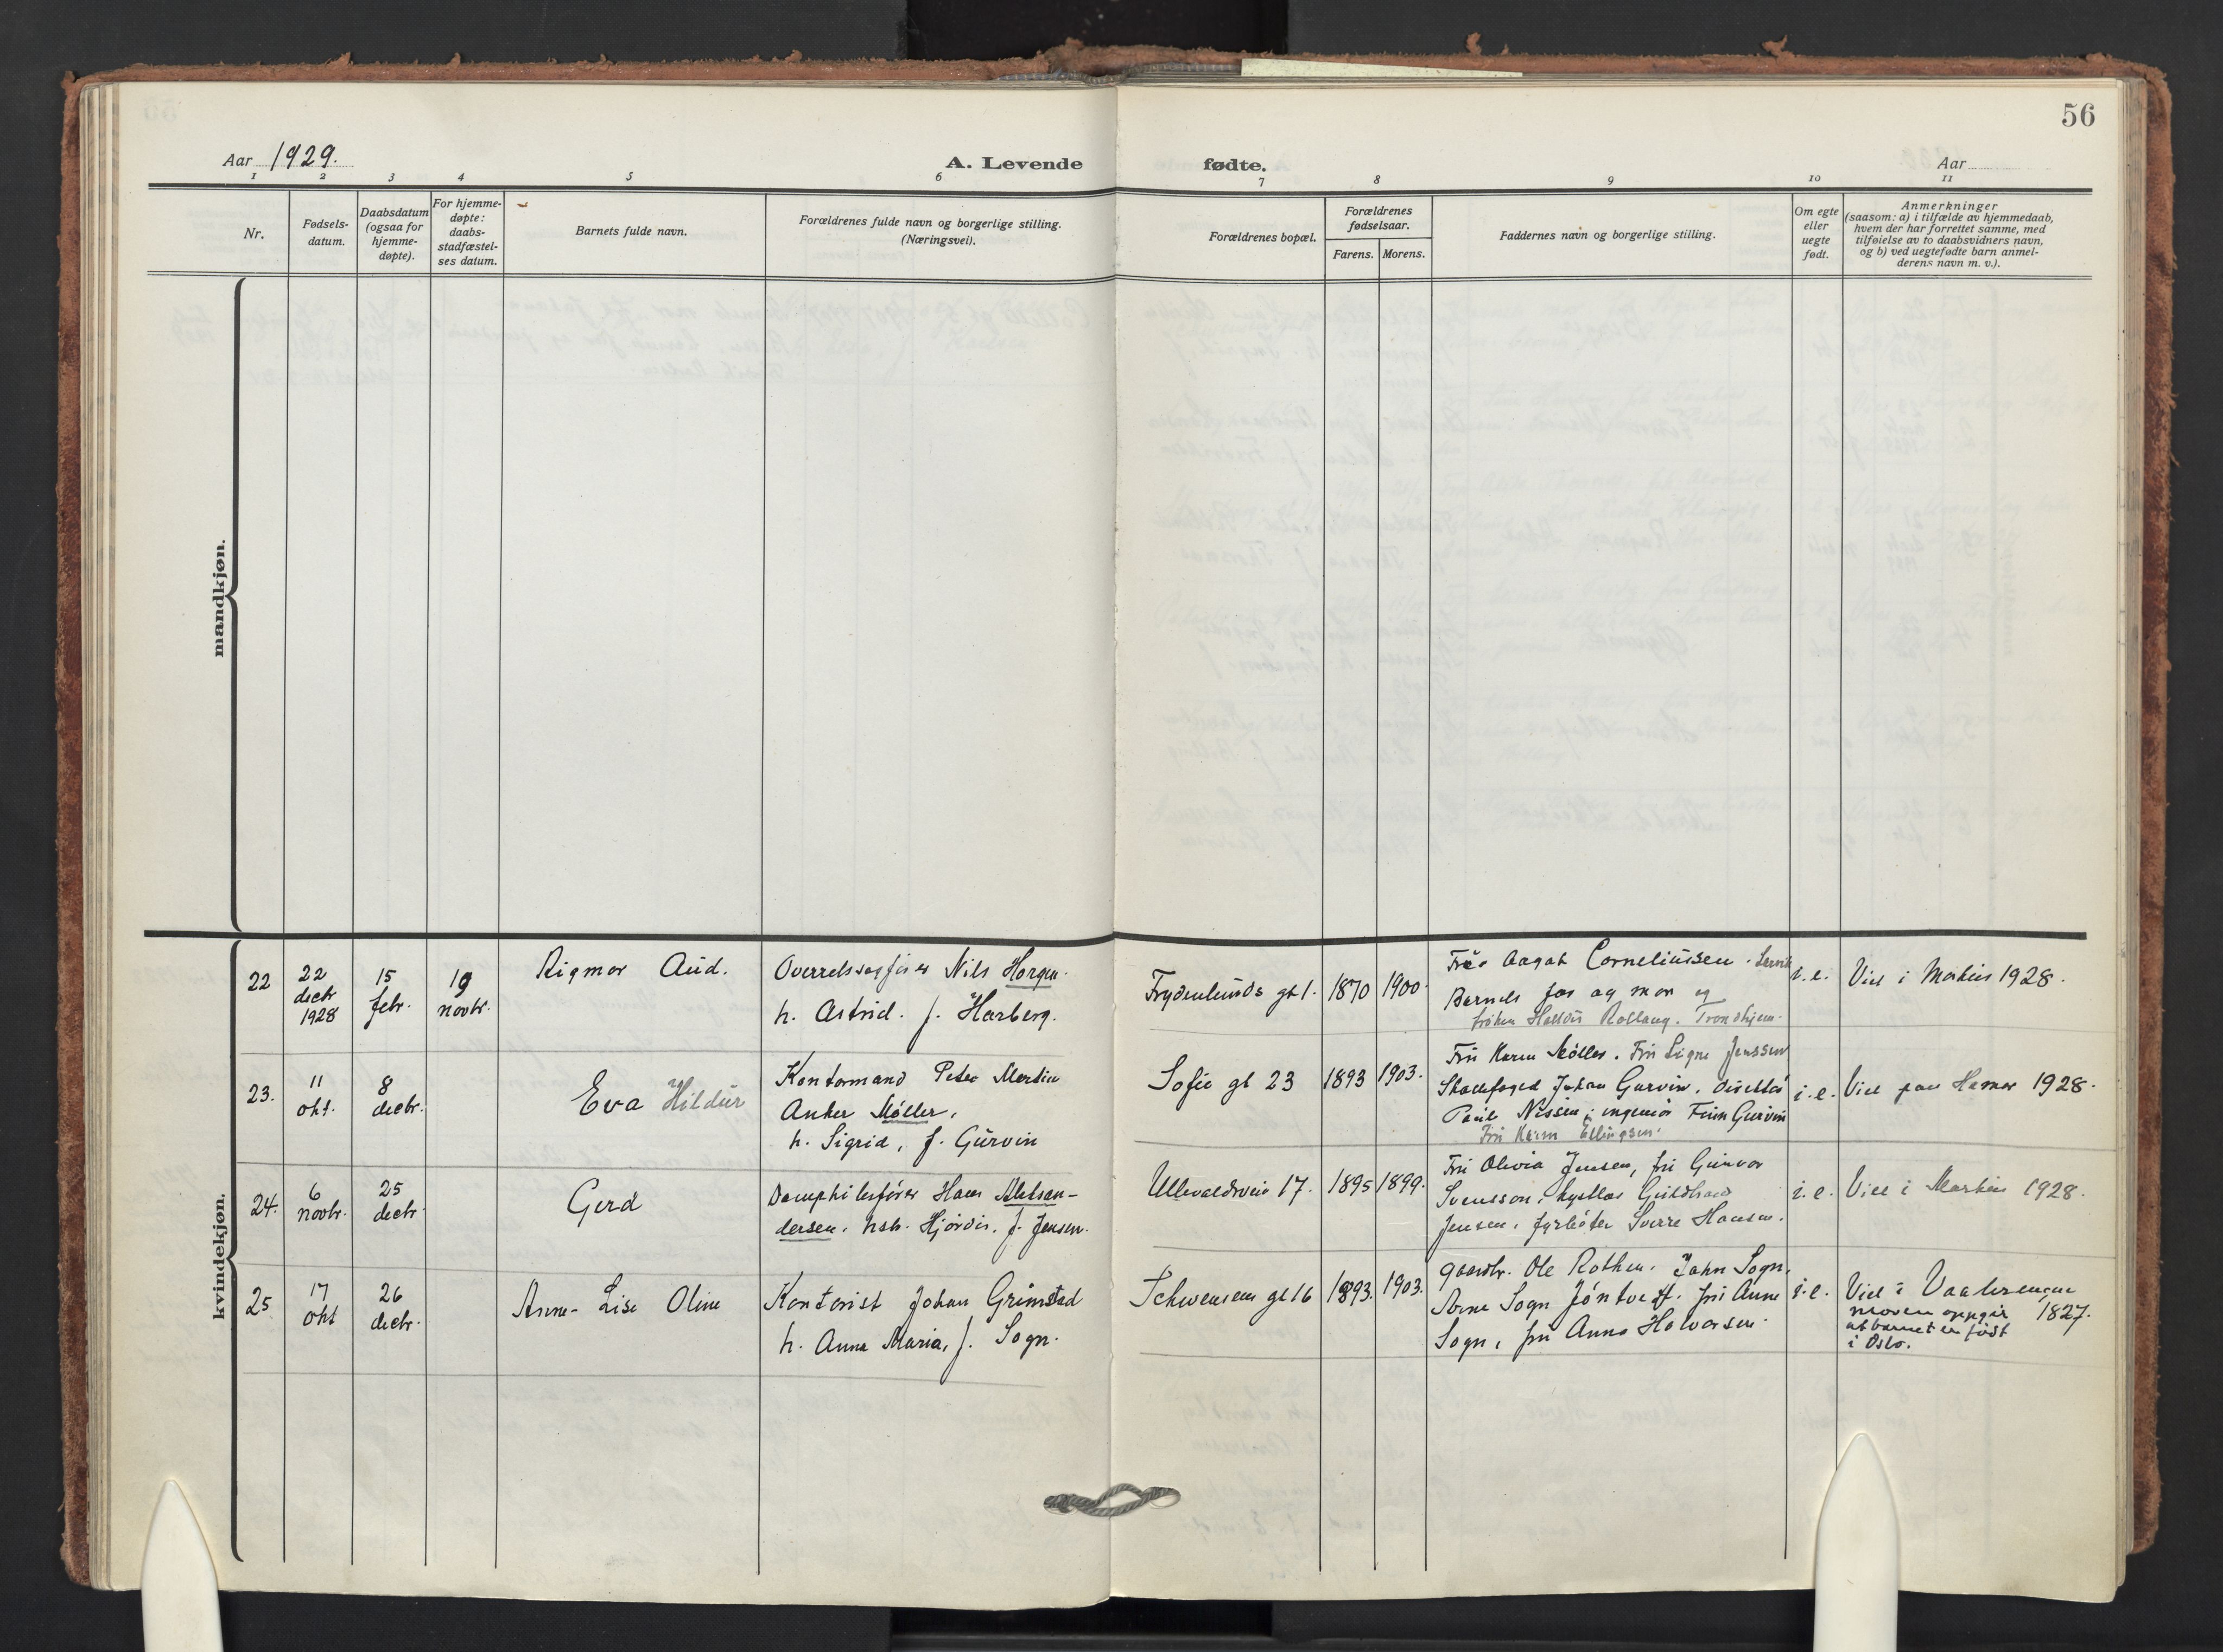 56
Aar 1929.
A. Levende fødte.
Aar
1 2 3 4 5 6 7 8 9 10 11
Nr.
Fødsels-
datum.
Daabsdatum
(ogsaa for
hjemme-
døpte).
For hjemme-
døpte:
daabs-
stadfæstel-
ses datum.
Barnets fulde navn.
Forældrenes fulde navn og borgerlige stilling.
(Næringsvei).
Forældrenes bopæl.
Forældrenes
fødselsaar.
Farens. Morens.
Faddernes navn og borgerlige stilling.
Om egte
eller
uegte
født.
Anmerkninger
(saasom: a) i tilfælde av hjemmedaab,
hvem der har forrettet samme, med
tilføielse av to daabsvidners navn,
og b) ved uegtefødte barn anmel-
derens navn m. v.).
mandkjøn.
kvindekjøn.
22
22
decbr
1928
15
febr.
19
novbr.
Rigmor Aud.
Overretssagfører Nils Horgen.
h. Astrid. f. Harberg.
Frydenlunds gt 1.
1870
1900.
Aagot Corneliussen.
Barnets far og mor og
frøken Rollaug. Trondhjem.
i. e.
Viet i Markus 1928.
23.
11
okt.
8
decbr.
Eva Hildur
Kontormand Peter Martin
Anker Møller,
h. Sigrid, f. Gurvin
Sofie gt 23
1893
1903.
Fru Karen Møller. Fru Signe Jenssen
Johan Gurvin.
Nissen, ingeniør Finn Gurvin
Fru Karen Ellingsen.
i. e.
Viet paa Hamar 1928.
24.
6
novbr.
25
decbr.
Gerd
Hans Aleksan-
dersen. hstr. Hjørdis. f. Jensen.
Ullevaalsvein 17.
1895
1899.
Fru Olivia Jensen, fru Gunvor
Svensson,
Jensen, fyrbøter Sverre Hansen.
i. e.
Viet i Markus 1928.
25
17
okt
26
decbr.
Anne-Lise Oline
Kontorist Johan Grimstad
h. Anna Maria, f. Sogn.
Schwensens gt 16
1893.
1903.
Gaardbr. Ole Rothen. John Sogn,
Arne Sogn fru Anne
Sogn, fru Anna Halvorsen.
i. e.
Viet i Vaalerengen
1827.
moren oppgir
at barnet er født
i Oslo.